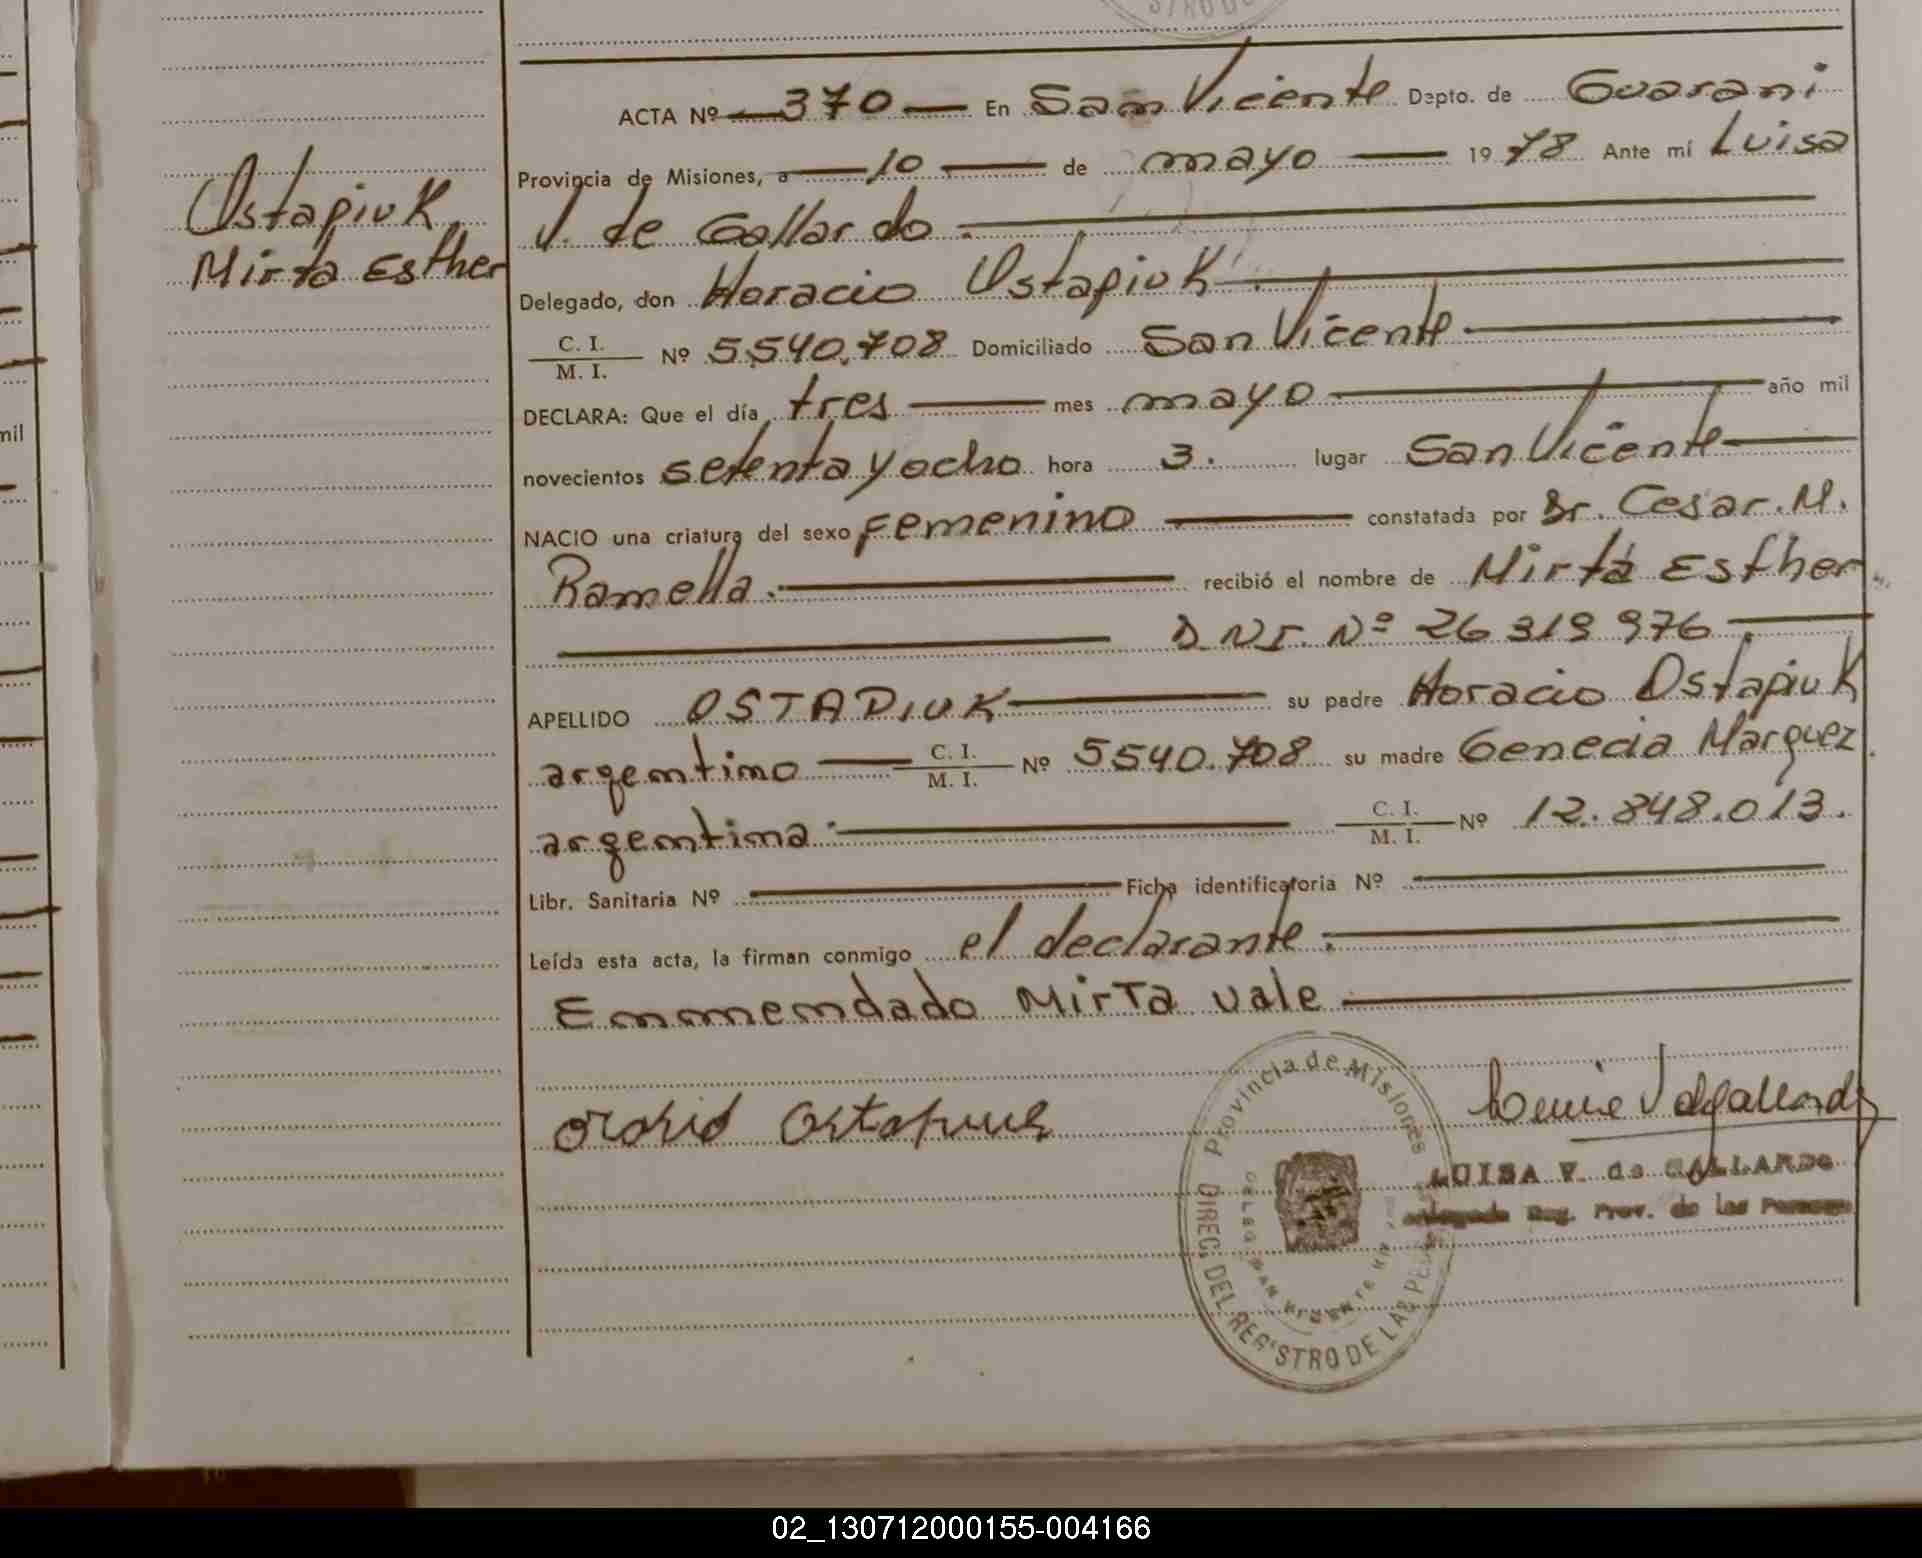 STRO DE
ACTA Nº 370 En San Vicente Depto. de Guarani
Provincia de Misiones, a 10 de mayo 1978 Ante mí Luisa
V. de Gallardo.
Ostapiuk
Mirta Esther
Delegado, don Horacio Ostapiuk.
C. I.
M. I. Nº 5.540.708 Domiciliado San Vicente
DECLARA: Que el día tres mes mayo año mil
novecientos setenta y ocho hora 3. lugar San Vicente
NACIO una criatura del sexo Femenino constatada por Dr. Cesar. M.
Ramella. recibió el nombre de Mirta Esther
D.N.I. Nº 26 319 976
APELLIDO OSTAPIUK su padre Horacio Ostapiuk
argentino C. I.
M. I. Nº 5540.708 su madre Genecia Marquez.
argentina. C. I.
M. I. Nº 12.848.013.
Libr. Sanitaria Nº Ficha identificatoria Nº
Leída esta acta, la firman conmigo el declarante.
Enmendado Mirta vale
Provincia de Misiones
DIREC. DEL REGISTRO DE LAS
LUISA V. de GALLARDO
Reg. Prov. de las Personas
mil
02_130712000155-004166